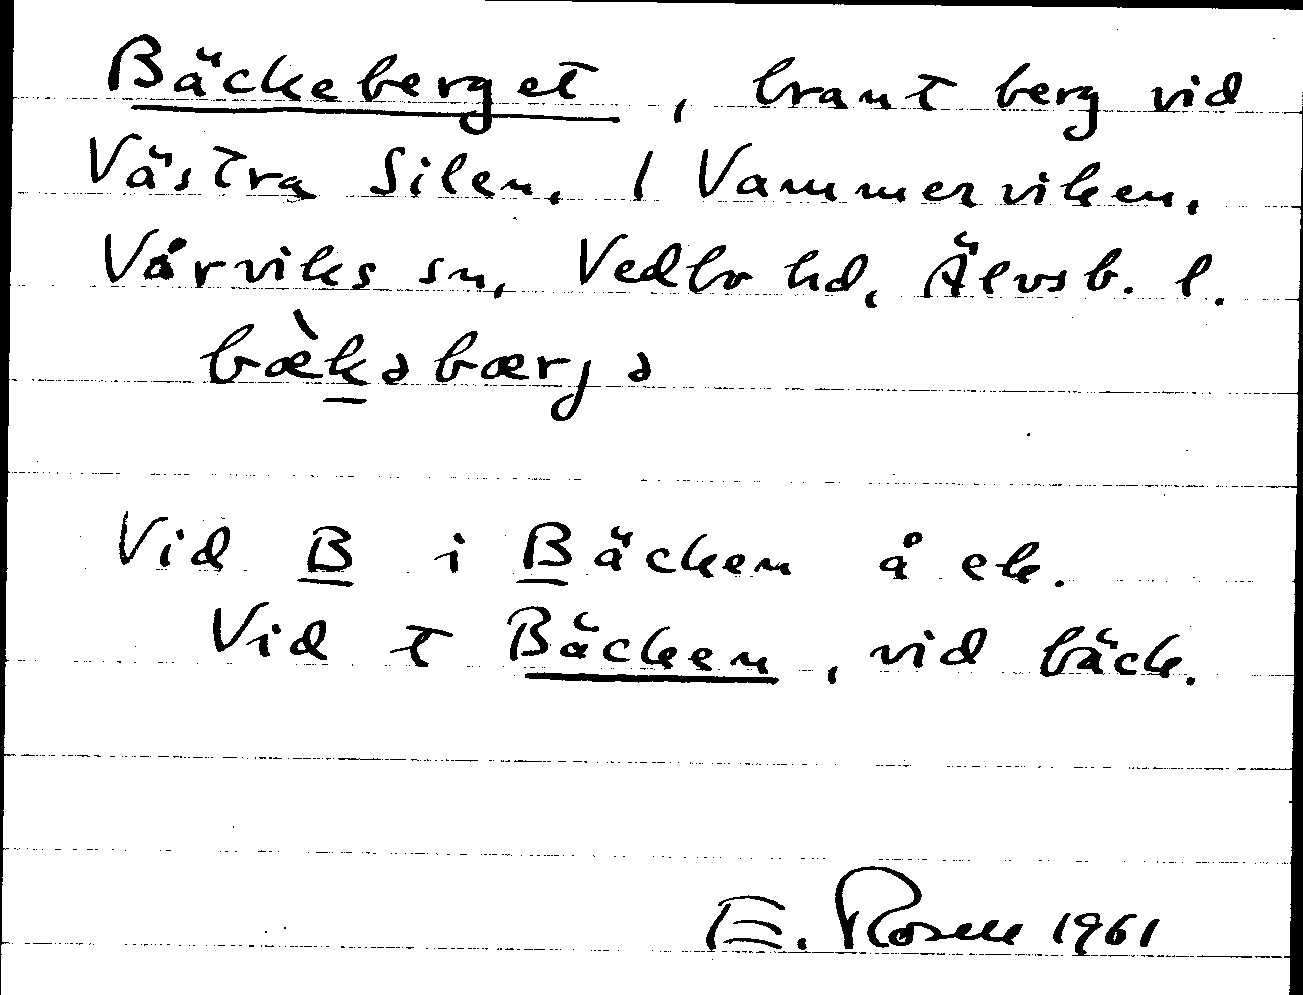 Bäckeberget, brant berg vid
Västra Silen. / Vammerviken,
Vårviks sn, Vedbo hd, Älvsb. l.
bæ̀kəbærjə
Vid B i Bäcken å ek.
Vid t Bäcken, vid bäck.
E. Rosell 1961